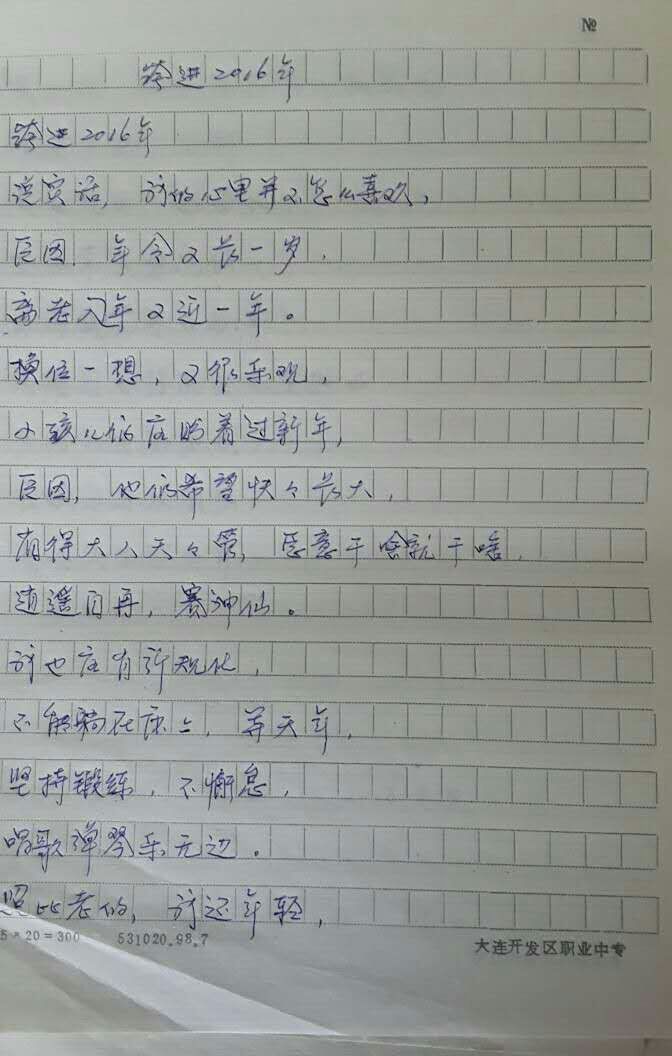 №
跨进2016年
跨进2016年
说实话，我的心里并不怎么喜欢，
原因，年令又长一岁，
离老人年又近一年。
换位一想，又很乐观，
小孩儿们在盼着过新年，
原因，他们希望快々长大，
省得大人天々管，愿意干啥就干啥，
逍遥自再，赛神仙。
我也应有新观化，
不能躺在床上，等天年，
坚持锻练，不懈息，
唱歌弹琴乐无边。
照比老的，我还年轻，
5×20=300 531020.98.7
大连开发区职业中专